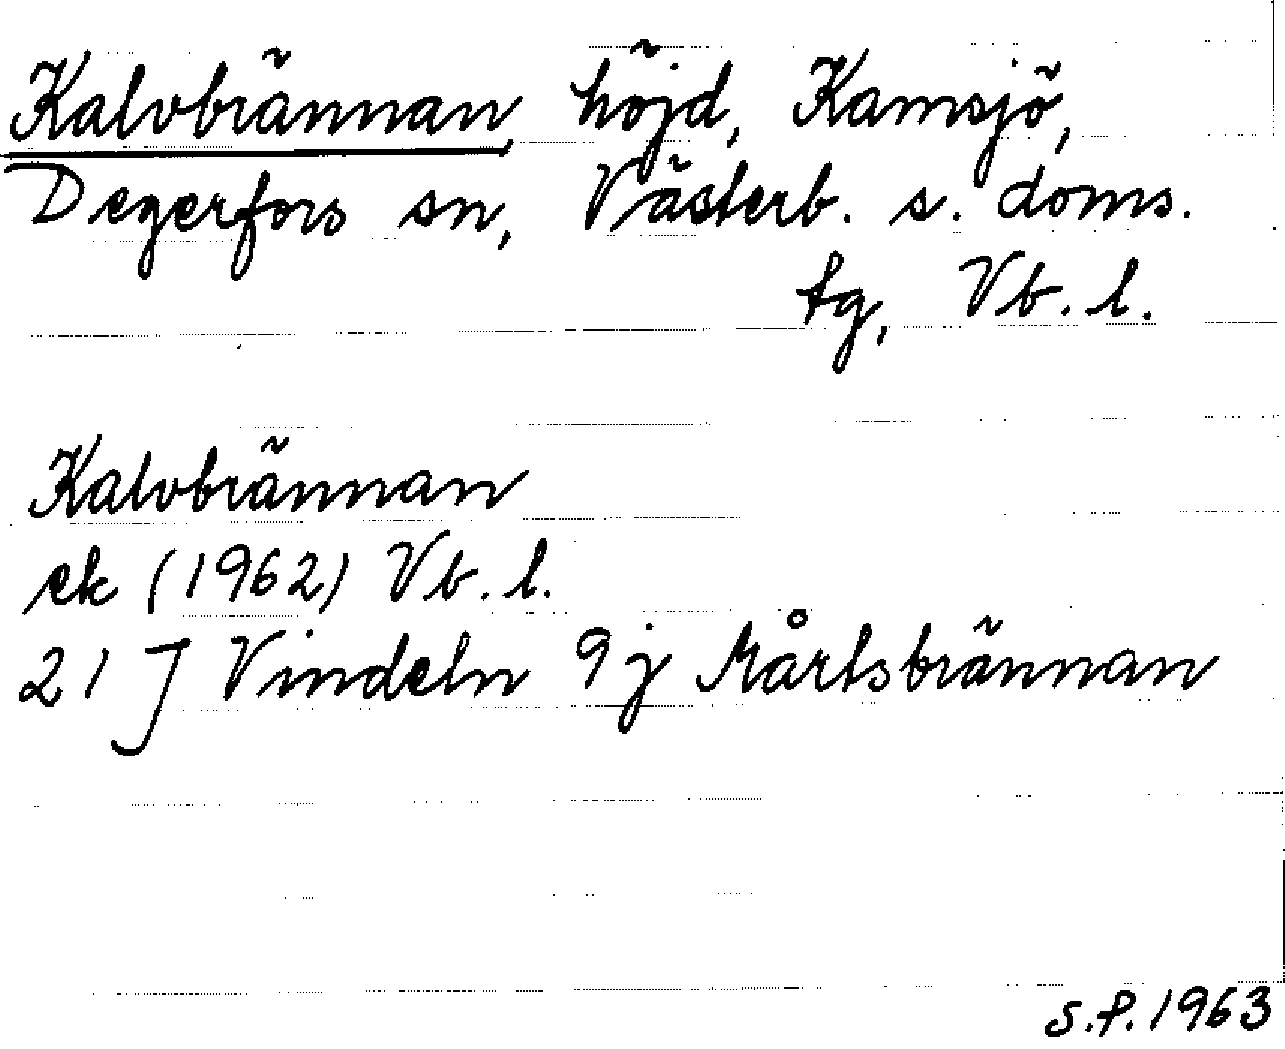 Kalvbrännan, höjd, Kamsjö,
Degerfors sn, Västerb. s. doms.
tg, Vb. l.
Kalvbrännan
ek (1962) Vb. l.
21 J Vindeln 9j Mårtsbrännan
S.P. 1963